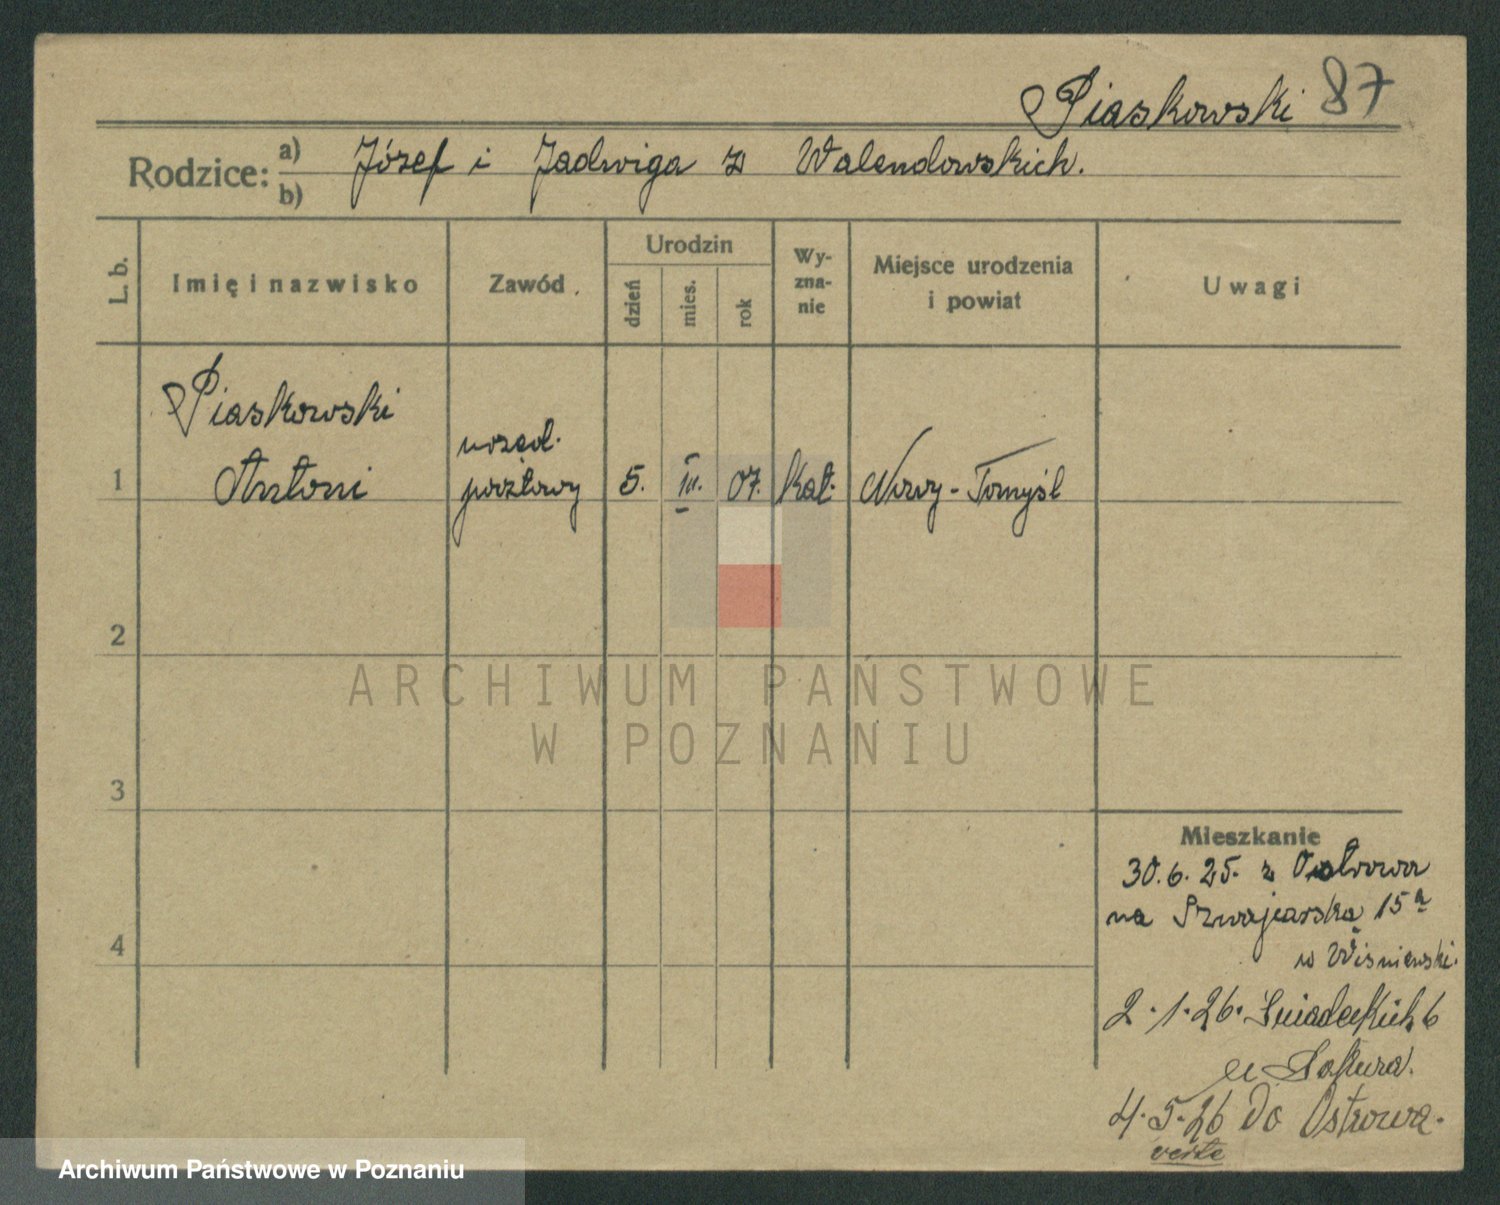 Piaskowski 87
Rodzice: a) Józef i Jadwiga z Walendowskich.
b)
L. b.
Imię i nazwisko
Zawód
Urodzin
dzień
mies.
rok
Wy-
zna-
nie
Miejsce urodzenia
i powiat
Uwagi
Piaskowski
1 Antoni
urzęd.
pocztowy
5. III. 07. Kat. Nowy-Tomyśl
2
3
4
Mieszkanie
30.6.25. z Ostrowa
na Szwajcarską 15a
u Wiśniewski.
2.1.26. Śniadeckich 6
u
4.5.26 do Ostrowa.
verte
ARCHIWUM PAŃSTWOWE
W POZNANIU
Archiwum Państwowe w Poznaniu